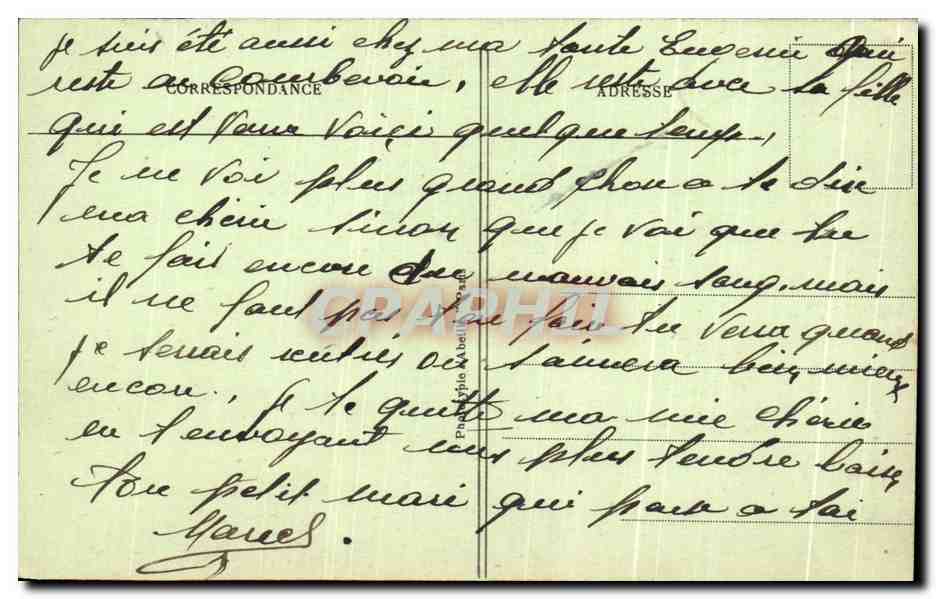 je suis été aussi chez ma tante Eugenie qui
reste a Courbevoie, elle reste avec sa fille
CORRESPONDANCE
ADRESSE
qui est voici quelque temps,
Je ne voi plus grand chose a te dire
ma cherie sinon que je voi que tu
te fais encore du mauvais sang, mais
il ne faut pas t'en faire tu verra quand
je serais rentrés on s'aimera bien mieux
encore, je te quitte ma mie chérie
en t'envoyant mes plus tendre baisers
ton petit mari qui pense a toi
Marcel.
Phototypie Abeille, Paris
CPARPHIL